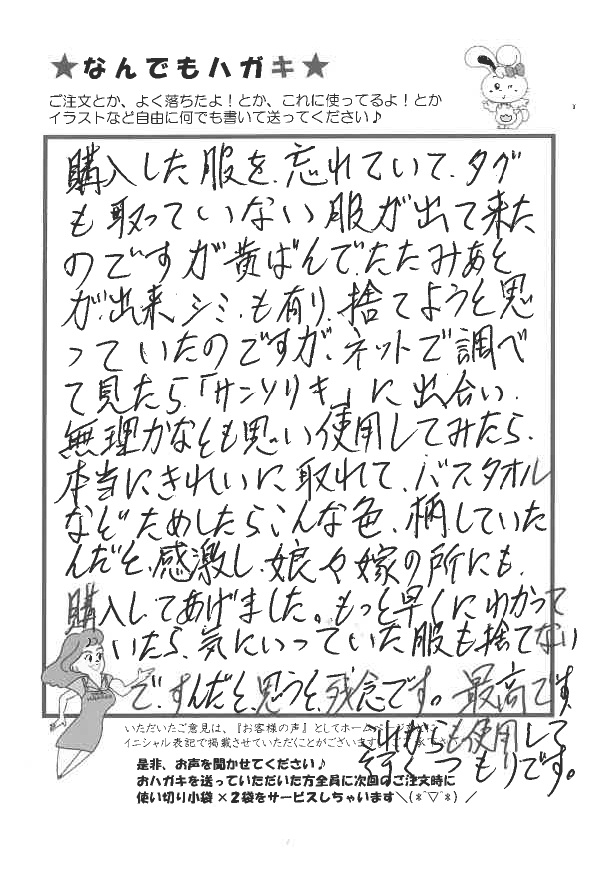 ★なんでもハガキ★
ご注文とか、よく落ちたよ！とか、これに使ってるよ！とか
イラストなど自由に何でも書いて送ってください♪
購入した服を、忘れていて、タグ
も取っていない服が出て来た
のですが黄ばんで、たたみあと
が、出来、シミ、も有り、捨てようと思
っていたのですが、ネットで調べ
て見たら、「サンソリキ」に出合い、
無理かなとも思い使用してみたら、
本当にきれいに取れて、バスタオル
などためしたらこんな色、柄していた
んだと、感激し、娘々嫁の所にも、
購入してあげました。もっと早くにわかって
いたら、気にいっていた服も捨てない
で、すんだと、思うと、残念です。最高です、
これからも使用して
行くつもりです。
いただいたご意見は、『お客様の声』としてホームページ
イニシャル表記で掲載させていただくことがございます
是非、お声を聞かせてください♪
おハガキを送っていただいた方全員に次回のご注文時に
使い切り小袋×２袋をサービスしちゃいます＼(*^▽^*)／